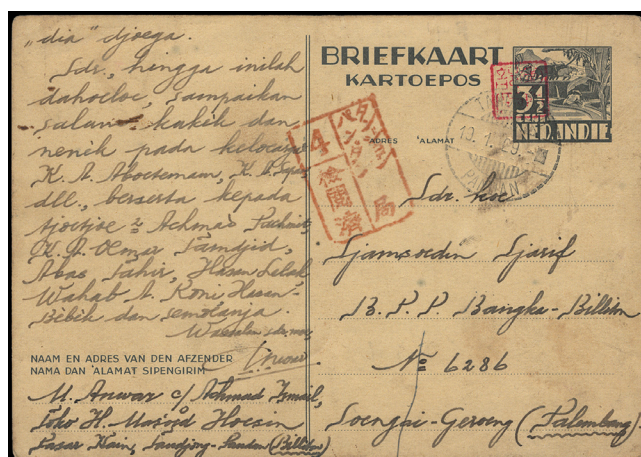 „dia" djoega.
Sdr., hingga inilah
dahoeloe, sampaikan
salam kakik dan
nenik pada keloearga
K. A. Aboetemam, K. A.
dll., beserta kepada
tjoetjoe2 Achmad
K. A. Oemar Tamdjid,
Abas Tahir, Hasan
Wahab A. Roni, Hasan-
Bèbik dan semoeanja.
Anwar
NAAM EN ADRES VAN DEN AFZENDER
NAMA DAN 'ALAMAT SIPENGIRIM
M. Anwar c/o Achmad Ismail,
Toko H. Masjod Hoesin
Pasar Ikan, Tandjong-Pandan (Billiton)
BRIEFKAART
KARTOEPOS
3½
NED. INDIE
ADRES 'ALAMAT
タンジョン
パンダン
4
局
検閲済
Sdr. hoe
Sjamsoedin Sjarif
B. P. P. Bangka-Billiton
No 6286
Soengai-Gerong (Palembang).